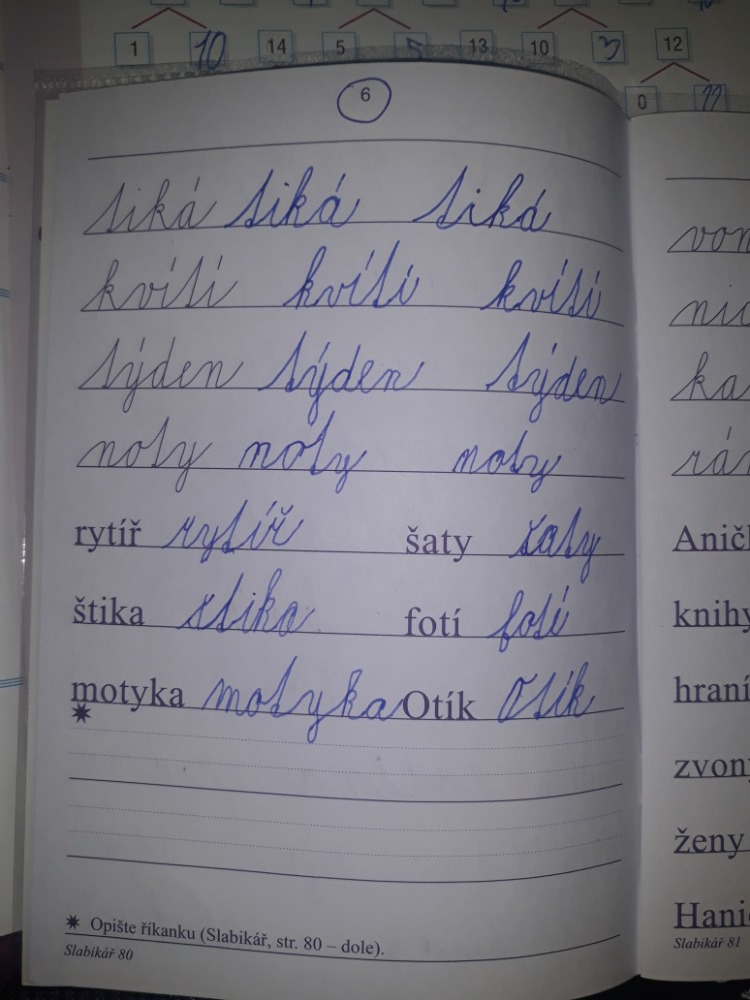 1 10 14 5 5 13 10 3 12
0 11
6
tiká tiká tiká
kvítí kvítí kvítí
týden týden týden
noty noty noty
rytíř rytíř šaty šaty
štika štika fotí fotí
motyka motyka Otík Otík
✷
✷ Opište říkanku (Slabikář, str. 80 – dole).
Slabikář 80
knihy
hraní
ženy
Slabikář 81